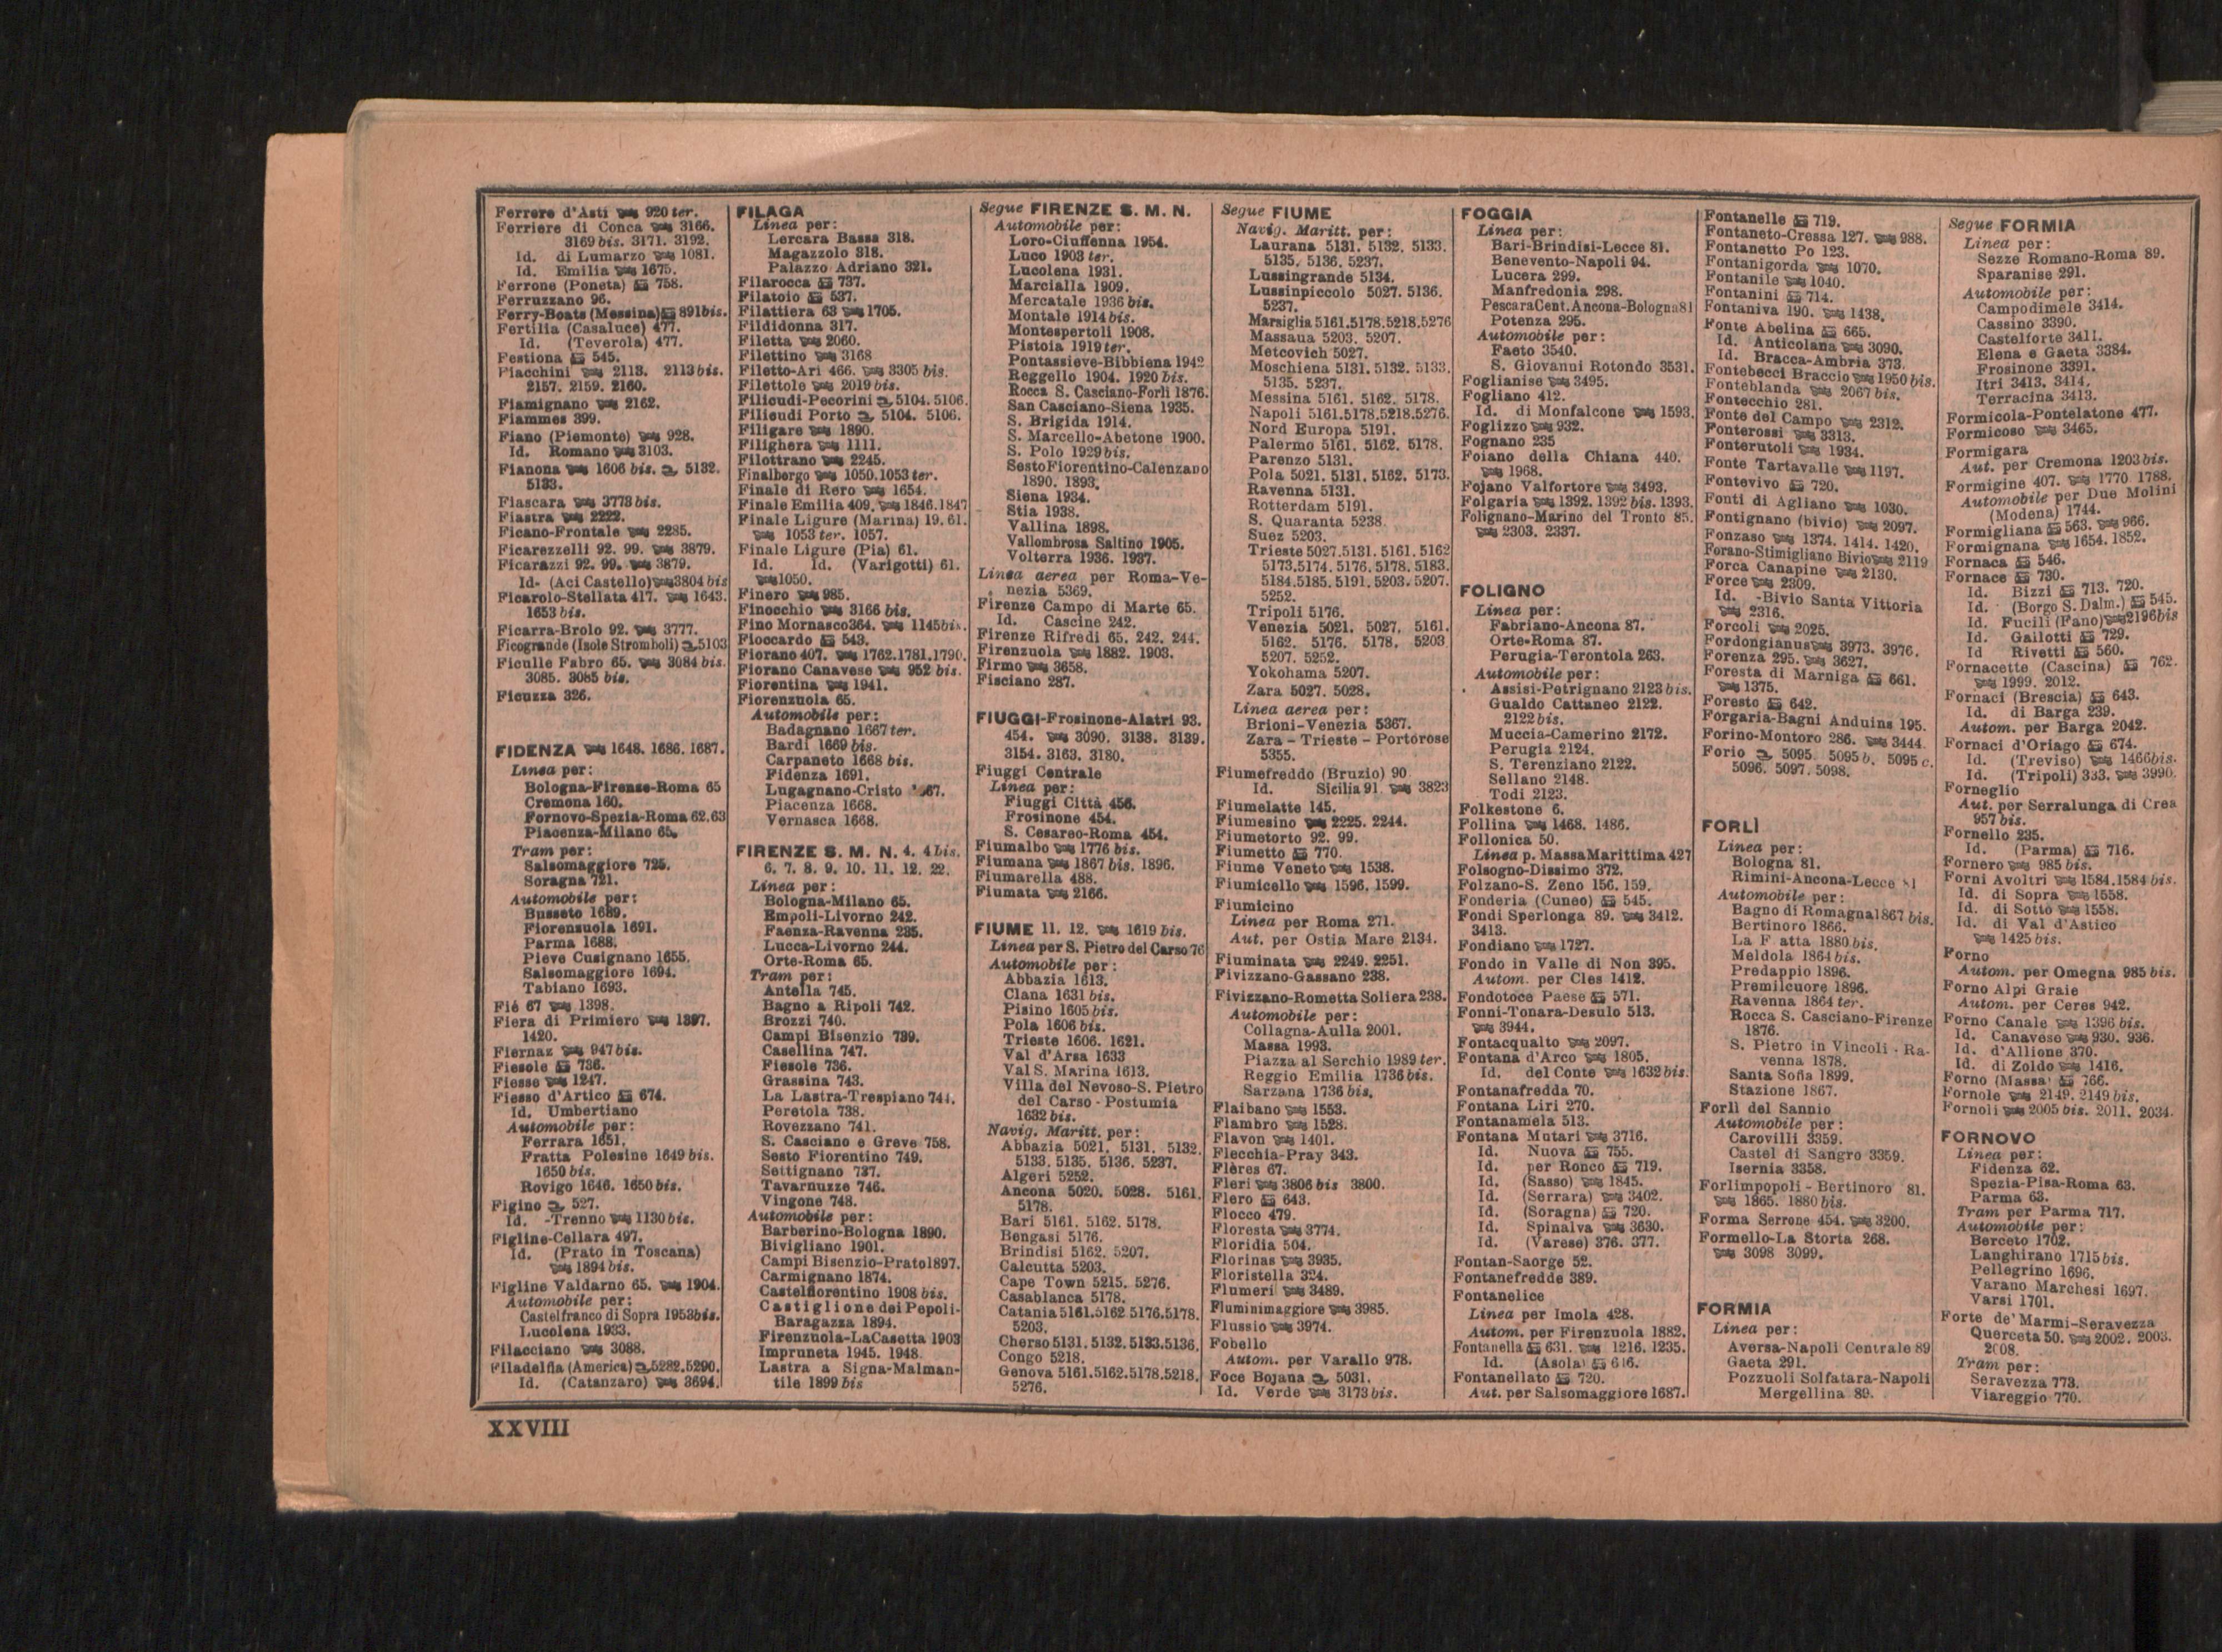 Ferrere d'Asti 920 ter.
Ferriere di Conca 3166.
3169 bis. 3171. 3192.
Id. di Lumarzo 1081.
Id. Emilia 1675.
Ferrone (Poneta) 758.
Ferruzzano 96.
Ferry-Boats (Messina) 891bis.
Fertilia (Casaluce) 477.
Id. (Teverola) 477.
Festiona 545.
Fiacchini 2113. 2113 bis.
2157. 2159. 2160.
Fiamignano 2162.
Fiammes 399.
Fiano (Piemonte) 928.
Id. Romano 3103.
Fianona 1606 bis. 5132.
5133.
Fiascara 3773 bis.
Fiastra 2222.
Ficano-Frontale 2285.
Ficarezzelli 92. 99. 3879.
Ficarazzi 92. 99. 3879.
Id- (Aci Castello) 3804 bis
Ficarolo-Stellata 417. 1643.
1653 bis.
Ficarra-Brolo 92. 3777.
Ficogrande (Isole Stromboli) 5103
Ficulle Fabro 65. 3084 bis.
3085. 3085 bis.
Ficuzza 326.
FIDENZA 1648. 1686. 1687.
Linea per:
Bologna-Firenze-Roma 65
Cremona 160.
Fornovo-Spezia-Roma 62.63
Piacenza-Milano 65.
Tram per:
Salsomaggiore 725.
Soragna 721.
Automobile per:
Busseto 1689.
Fiorenzuola 1691.
Parma 1688.
Pieve Cusignano 1655.
Salsomaggiore 1694.
Tabiano 1693.
Fié 67 1398.
Fiera di Primiero 1397.
1420.
Fiernaz 947 bis.
Fiesole 736.
Fiesse 1247.
Fiesso d'Artico 674.
Id. Umbertiano
Automobile per:
Ferrara 1651.
Fratta Polesine 1649 bis.
1650 bis.
Rovigo 1646. 1650 bis.
Figino 527.
Id. -Trenno 1130 bis.
Figline-Cellara 497.
Id. (Prato in Toscana)
1894 bis.
Figline Valdarno 65. 1904.
Automobile per:
Castelfranco di Sopra 1953bis.
Lucolena 1933.
Filacciano 3088.
Filadelfia (America) 5282.5290.
Id. (Catanzaro) 3694.
FILAGA
Linea per:
Lercara Bassa 318.
Magazzolo 318.
Palazzo Adriano 321.
Filarocca 737.
Filatoio 537.
Filattiera 63 1705.
Fildidonna 317.
Filetta 2060.
Filettino 3168
Filetto-Ari 466. 3305 bis.
Filettole 2019 bis.
Filicudi-Pecorini 5104. 5106.
Filicudi Porto 5104. 5106.
Filigare 1890.
Filighera 1111.
Filottrano 2245.
Finalbergo 1050.1053 ter.
Finale di Rero 1654.
Finale Emilia 409. 1846.1847
Finale Ligure (Marina) 19. 61.
1053 ter. 1057.
Finale Ligure (Pia) 61.
Id. Id. (Varigotti) 61.
1050.
Finero 985.
Finocchio 3166 bis.
Fino Mornasco 364. 1145bis.
Fioccardo 543.
Fiorano 407. 1762.1781.1790.
Fiorano Canavese 952 bis.
Fiorentina 1941.
Fiorenzuola 65.
Automobile per:
Badagnano 1667 ter.
Bardi 1669 bis.
Carpaneto 1668 bis.
Fidenza 1691.
Lugagnano-Cristo 67.
Piacenza 1668.
Vernasca 1668.
FIRENZE S. M. N. 4. 4 bis.
6. 7. 8. 9. 10. 11. 12. 22.
Linea per:
Bologna-Milano 65.
Empoli-Livorno 242.
Faenza-Ravenna 235.
Lucca-Livorno 244.
Orte-Roma 65.
Tram per:
Antella 745.
Bagno a Ripoli 742.
Brozzi 740.
Campi Bisenzio 739.
Casellina 747.
Fiesole 736.
Grassina 743.
La Lastra-Trespiano 744.
Peretola 738.
Rovezzano 741.
S. Casciano e Greve 758.
Sesto Fiorentino 749.
Settignano 737.
Tavarnuzze 746.
Vingone 748.
Automobile per:
Barberino-Bologna 1890.
Bivigliano 1901.
Campi Bisenzio-Prato1897.
Carmignano 1874.
Castelfiorentino 1908 bis.
Castiglione dei Pepoli-
Baragazza 1894.
Firenzuola-LaCasetta 1903
Impruneta 1945. 1948.
Lastra a Signa-Malman-
tile 1899 bis
Segue FIRENZE S. M. N.
Automobile per:
Loro-Ciuffenna 1954.
Luco 1903 ter.
Lucolena 1931.
Marcialla 1909.
Mercatale 1936 bis.
Montale 1914 bis.
Montespertoli 1908.
Pistoia 1919 ter.
Pontassieve-Bibbiena 1942
Reggello 1904. 1920 bis.
Rocca S. Casciano-Forlì 1876.
San Casciano-Siena 1935.
S. Brigida 1914.
S. Marcello-Abetone 1900.
S. Polo 1929 bis.
Sesto Fiorentino-Calenzano
1890. 1893.
Siena 1934.
Stia 1938.
Vallina 1898.
Vallombrosa Saltino 1905.
Volterra 1936. 1937.
Linea aerea per Roma-Ve-
nezia 5369.
Firenze Campo di Marte 65.
Id. Cascine 242.
Firenze Rifredi 65. 242. 244.
Firenzuola 1882. 1903.
Firmo 3658.
Fisciano 287.
FIUGGI-Frosinone-Alatri 93.
454. 3090. 3138. 3139.
3154. 3163. 3180.
Fiuggi Centrale
Linea per:
Fiuggi Città 456.
Frosinone 454.
S. Cesareo-Roma 454.
Fiumalbo 1776 bis.
Fiumana 1867 bis. 1896.
Fiumarella 488.
Fiumata 2166.
FIUME 11. 12. 1619 bis.
Linea per S. Pietro del Carso 76
Automobile per:
Abbazia 1613.
Clana 1631 bis.
Pisino 1605 bis.
Pola 1606 bis.
Trieste 1606. 1621.
Val d'Arsa 1633
Val S. Marina 1613.
Villa del Nevoso-S. Pietro
del Carso - Postumia
1632 bis.
Navig. Maritt. per:
Abbazia 5021. 5131. 5132.
5133. 5135. 5136. 5237.
Algeri 5252.
Ancona 5020. 5028. 5161.
5178.
Bari 5161. 5162. 5178.
Bengasi 5176.
Brindisi 5162. 5207.
Calcutta 5203.
Cape Town 5215. 5276.
Casablanca 5178.
Catania 5161.5162 5176.5178.
5203.
Cherso 5131. 5132. 5133.5136.
Congo 5218.
Genova 5161.5162.5178.5218.
5276.
Segue FIUME
Navig. Maritt. per:
Laurana 5131. 5132. 5133.
5135. 5136. 5237.
Lussingrande 5134.
Lussinpiccolo 5027. 5136.
5237.
Marsiglia 5161.5178.5218.5276
Massaua 5203. 5207.
Metcovich 5027.
Moschiena 5131. 5132. 5133.
5135. 5237.
Messina 5161. 5162. 5178.
Napoli 5161.5178.5218.5276.
Nord Europa 5191.
Palermo 5161. 5162. 5178.
Parenzo 5131.
Pola 5021. 5131. 5162. 5173.
Ravenna 5131.
Rotterdam 5191.
S. Quaranta 5238
Suez 5203.
Trieste 5027.5131. 5161. 5162
5173.5174. 5176. 5178. 5183.
5184.5185. 5191. 5203. 5207.
5252.
Tripoli 5176.
Venezia 5021. 5027. 5161.
5162. 5176. 5178. 5203
5207. 5252.
Yokohama 5207.
Zara 5027. 5028.
Linea aerea per:
Brioni-Venezia 5367.
Zara - Trieste - Portorose
5355.
Fiumefreddo (Bruzio) 90
Id. Sicilia 91 3823
Fiumelatte 145.
Fiumesino 2225. 2244.
Fiumetorto 92. 99.
Fiumetto 770.
Fiume Veneto 1538.
Fiumicello 1596. 1599.
Fiumicino
Linea per Roma 271.
Aut. per Ostia Mare 2134.
Fiuminata 2249. 2251.
Fivizzano-Gassano 238.
Fivizzano-Rometta Soliera 238.
Automobile per:
Collagna-Aulla 2001.
Massa 1993.
Piazza al Serchio 1989 ter.
Reggio Emilia 1736 bis.
Sarzana 1736 bis.
Flaibano 1553.
Flambro 1528.
Flavon 1401.
Flecchia-Pray 343.
Flères 67.
Fleri 3806 bis 3800.
Flero 643.
Flocco 479.
Floresta 3774.
Floridia 504.
Florinas 3935.
Floristella 324.
Flumeri 3489.
Fluminimaggiore 3985.
Flussio 3974.
Fobello
Autom. per Varallo 978.
Foce Bojana 5031.
Id. Verde 3173 bis.
FOGGIA
Linea per:
Bari-Brindisi-Lecce 81.
Benevento-Napoli 94.
Lucera 299.
Manfredonia 298.
PescaraCent.Ancona-Bologna81
Potenza 295.
Automobile per:
Faeto 3540.
S. Giovanni Rotondo 3531.
Foglianise 3495.
Fogliano 412.
Id. di Monfalcone 1593.
Foglizzo 932.
Fognano 235
Foiano della Chiana 440.
1968.
Fojano Valfortore 3493.
Folgaria 1392. 1392 bis. 1393.
Folignano-Marino del Tronto 85.
2303. 2337.
FOLIGNO
Linea per:
Fabriano-Ancona 87.
Orte-Roma 87.
Perugia-Terontola 263.
Automobile per:
Assisi-Petrignano 2123 bis.
Gualdo Cattaneo 2122.
2122 bis.
Muccia-Camerino 2172.
Perugia 2124.
S. Terenziano 2122.
Sellano 2148.
Todi 2123.
Folkestone 6.
Follina 1468. 1486.
Follonica 50.
Linea p. MassaMarittima 427
Folsogno-Dissimo 372.
Folzano-S. Zeno 156. 159.
Fonderia (Cuneo) 545.
Fondi Sperlonga 89. 3412.
3413.
Fondiano 1727.
Fondo in Valle di Non 395.
Autom. per Cles 1412.
Fondotoce Paese 571.
Fonni-Tonara-Desulo 513.
3944.
Fontacqualto 2097.
Fontana d'Arco 1805.
Id. del Conte 1632 bis.
Fontanafredda 70.
Fontana Liri 270.
Fontanamela 513.
Fontana Mutari 3716.
Id. Nuova 755.
Id. per Ronco 719.
Id. (Sasso) 1845.
Id. (Serrara) 3402.
Id. (Soragna) 720.
Id. Spinalva 3630.
Id. (Varese) 376. 377.
Fontan-Saorge 52.
Fontanefredde 389.
Fontanelice
Linea per Imola 428.
Autom. per Firenzuola 1882.
Fontanella 631. 1216. 1235.
Id. (Asola) 616.
Fontanellato 720.
Aut. per Salsomaggiore 1687.
Fontanelle 719.
Fontaneto-Cressa 127. 988.
Fontanetto Po 123.
Fontanigorda 1070.
Fontanile 1040.
Fontanini 714.
Fontaniva 190. 1438.
Fonte Abelina 665.
Id. Anticolana 3090.
Id. Bracca-Ambria 373.
Fontebecci Braccio 1950 bis.
Fonteblanda 2067 bis.
Fontecchio 281.
Fonte del Campo 2312.
Fonterossi 3313.
Fonterutoli 1934.
Fonte Tartavalle 1197.
Fontevivo 720.
Fonti di Agliano 1030.
Fontignano (bivio) 2097.
Fonzaso 1374. 1414. 1420.
Forano-Stimigliano Bivio 2119
Forca Canapine 2130.
Force 2309.
Id. -Bivio Santa Vittoria
2316.
Forcoli 2025.
Fordongianus 3973. 3976.
Forenza 295. 3627.
Foresta di Marniga 661.
1375.
Foresto 642.
Forgaria-Bagni Anduins 195.
Forino-Montoro 286. 3444
Forio 5095 5095 b. 5095 c.
5096. 5097. 5098.
FORLÌ
Linea per:
Bologna 81.
Rimini-Ancona-Lecce 81
Automobile per:
Bagno di Romagna1867 bis.
Bertinoro 1866.
La F atta 1880 bis.
Meldola 1864 bis.
Predappio 1896.
Premilcuore 1896.
Ravenna 1864 ter.
Rocca S. Casciano-Firenze
1876.
S. Pietro in Vincoli - Ra-
venna 1878.
Santa Sofia 1899.
Stazione 1867.
Forlì del Sannio
Automobile per:
Carovilli 3359.
Castel di Sangro 3359.
Isernia 3358.
Forlimpopoli - Bertinoro 81.
1865. 1880 bis.
Forma Serrone 454. 3200.
Formello-La Storta 268.
3098 3099.
FORMIA
Linea per:
Aversa-Napoli Centrale 89
Gaeta 291.
Pozzuoli Solfatara-Napoli
Mergellina 89.
Segue FORMIA
Linea per:
Sezze Romano-Roma 89.
Sparanise 291.
Automobile per:
Campodimele 3414.
Cassino 3390.
Castelforte 3411.
Elena e Gaeta 3384.
Frosinone 3391.
Itri 3413. 3414.
Terracina 3413.
Formicola-Pontelatone 477.
Formicoso 3465.
Formigara
Aut. per Cremona 1203 bis.
Formigine 407. 1770 1788.
Automobile per Due Molini
(Modena) 1744.
Formigliana 563. 966.
Formignana 1654. 1852.
Fornaca 546.
Fornace 730.
Id. Bizzi 713. 720.
Id. (Borgo S. Dalm.) 545.
Id. Fucili (Fano) 2196bis
Id. Gailotti 729.
Id Rivetti 560.
Fornacette (Cascina) 762.
1999. 2012.
Fornaci (Brescia) 643.
Id. di Barga 239.
Autom. per Barga 2042.
Fornaci d'Oriago 674.
Id. (Treviso) 1466bis.
Id. (Tripoli) 333. 3990.
Forneglio
Aut. per Serralunga di Crea
957 bis.
Fornello 235.
Id. (Parma) 716.
Fornero 985 bis.
Forni Avoltri 1584.1584 bis.
Id. di Sopra 1558.
Id. di Sotto 1558.
Id. di Val d'Astico
1425 bis.
Forno
Autom. per Omegna 985 bis.
Forno Alpi Graie
Autom. per Ceres 942.
Forno Canale 1396 bis.
Id. Canavese 930. 936.
Id. d'Allione 370.
Id. di Zoldo 1416.
Forno (Massa) 766.
Fornole 2149. 2149 bis.
Fornoli 2005 bis. 2011. 2034.
FORNOVO
Linea per:
Fidenza 62.
Spezia-Pisa-Roma 63.
Parma 63.
Tram per Parma 717.
Automobile per:
Berceto 1702.
Langhirano 1715 bis.
Pellegrino 1696.
Varano Marchesi 1697.
Varsi 1701.
Forte de' Marmi-Seravezza
Querceta 50. 2002. 2003.
2008.
Tram per:
Seravezza 773.
Viareggio 770.
XXVIII